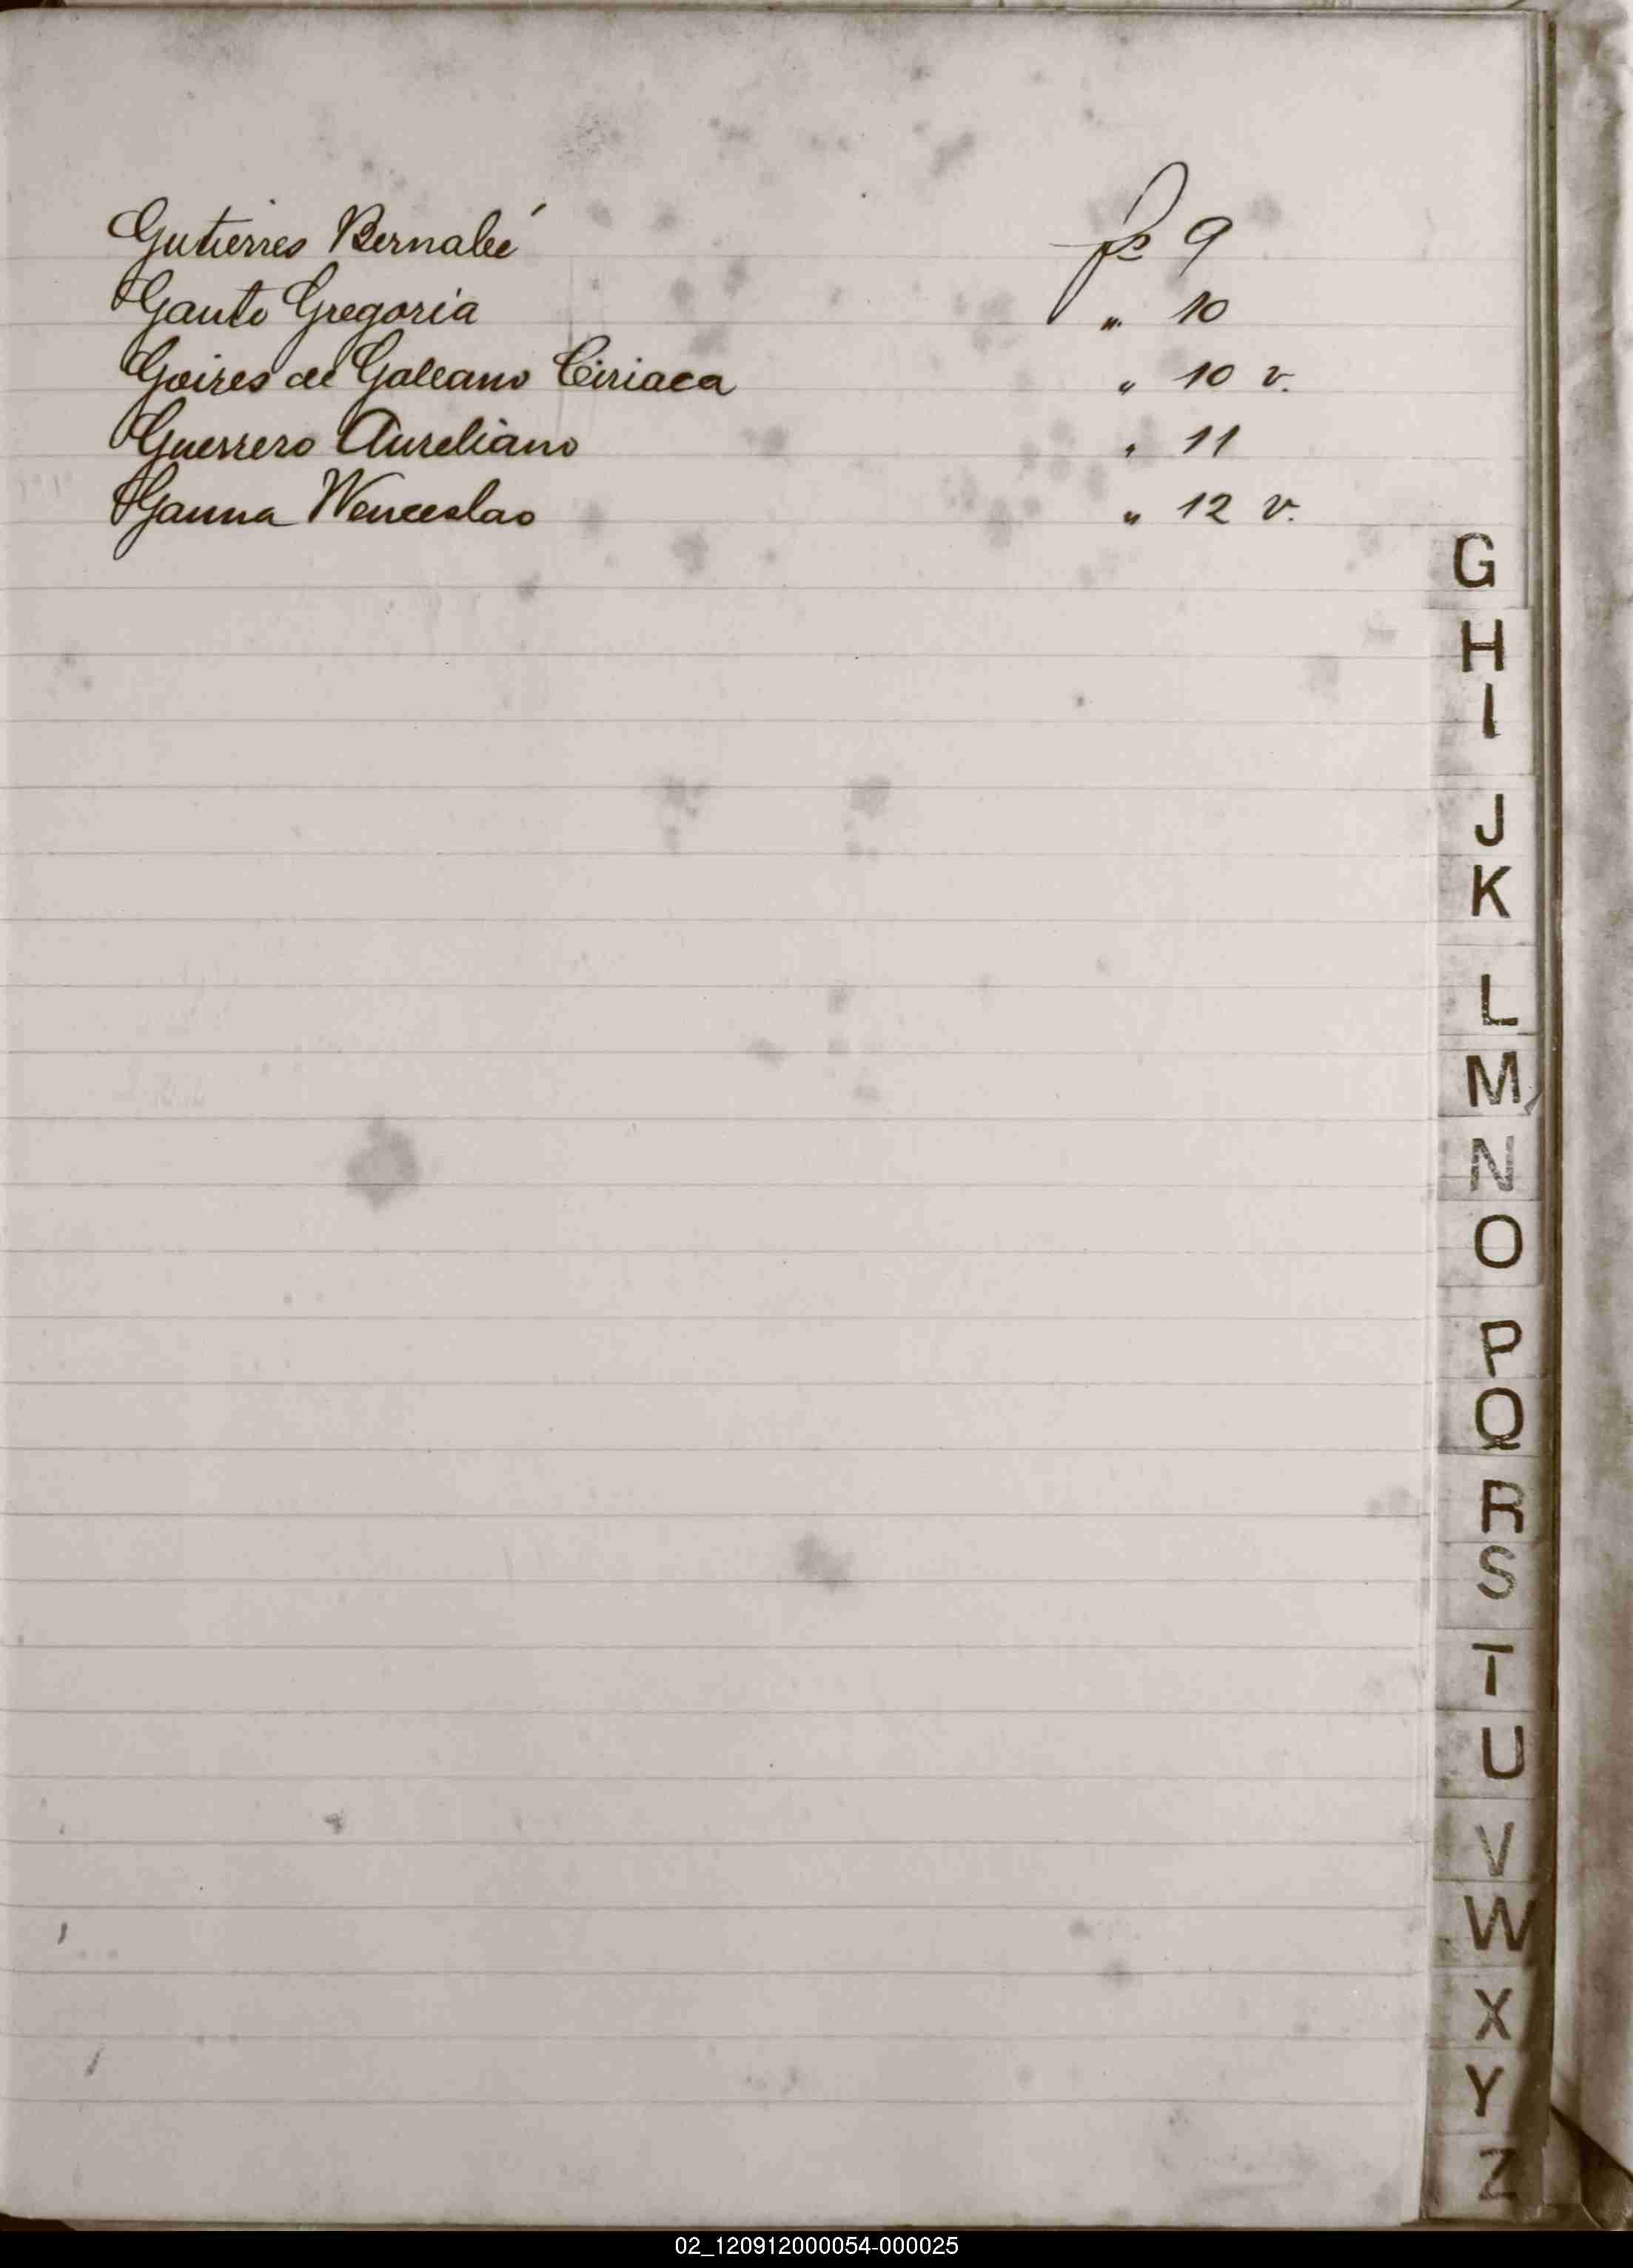 Gutierres Bernabé fs 9
Gauto Gregoria " 10
Goires de Galeano Ciriaca " 10 v.
Guerrero Aureliano " 11
Gauna Wenceslao " 12 v.
G
H
I
J
K
L
M
N
O
P
Q
R
S
T
U
V
W
X
Y
Z
02_120912000054-000025